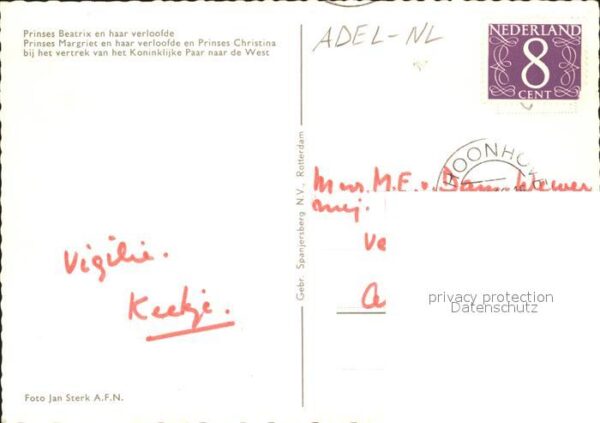 Prinses Beatrix en haar verloofde
Prinses Margriet en haar verloofde en Prinses Christina
bij het vertrek van het Koninklijke Paar naar de West
ADEL-NL
NEDERLAND
8
CENT
Gebr. Spanjersberg N.V., Rotterdam
OONHO
M.E. v.
mej.
Ve
Vigilie.
Keetje.
privacy protection
Datenschutz
Foto Jan Sterk A.F.N.